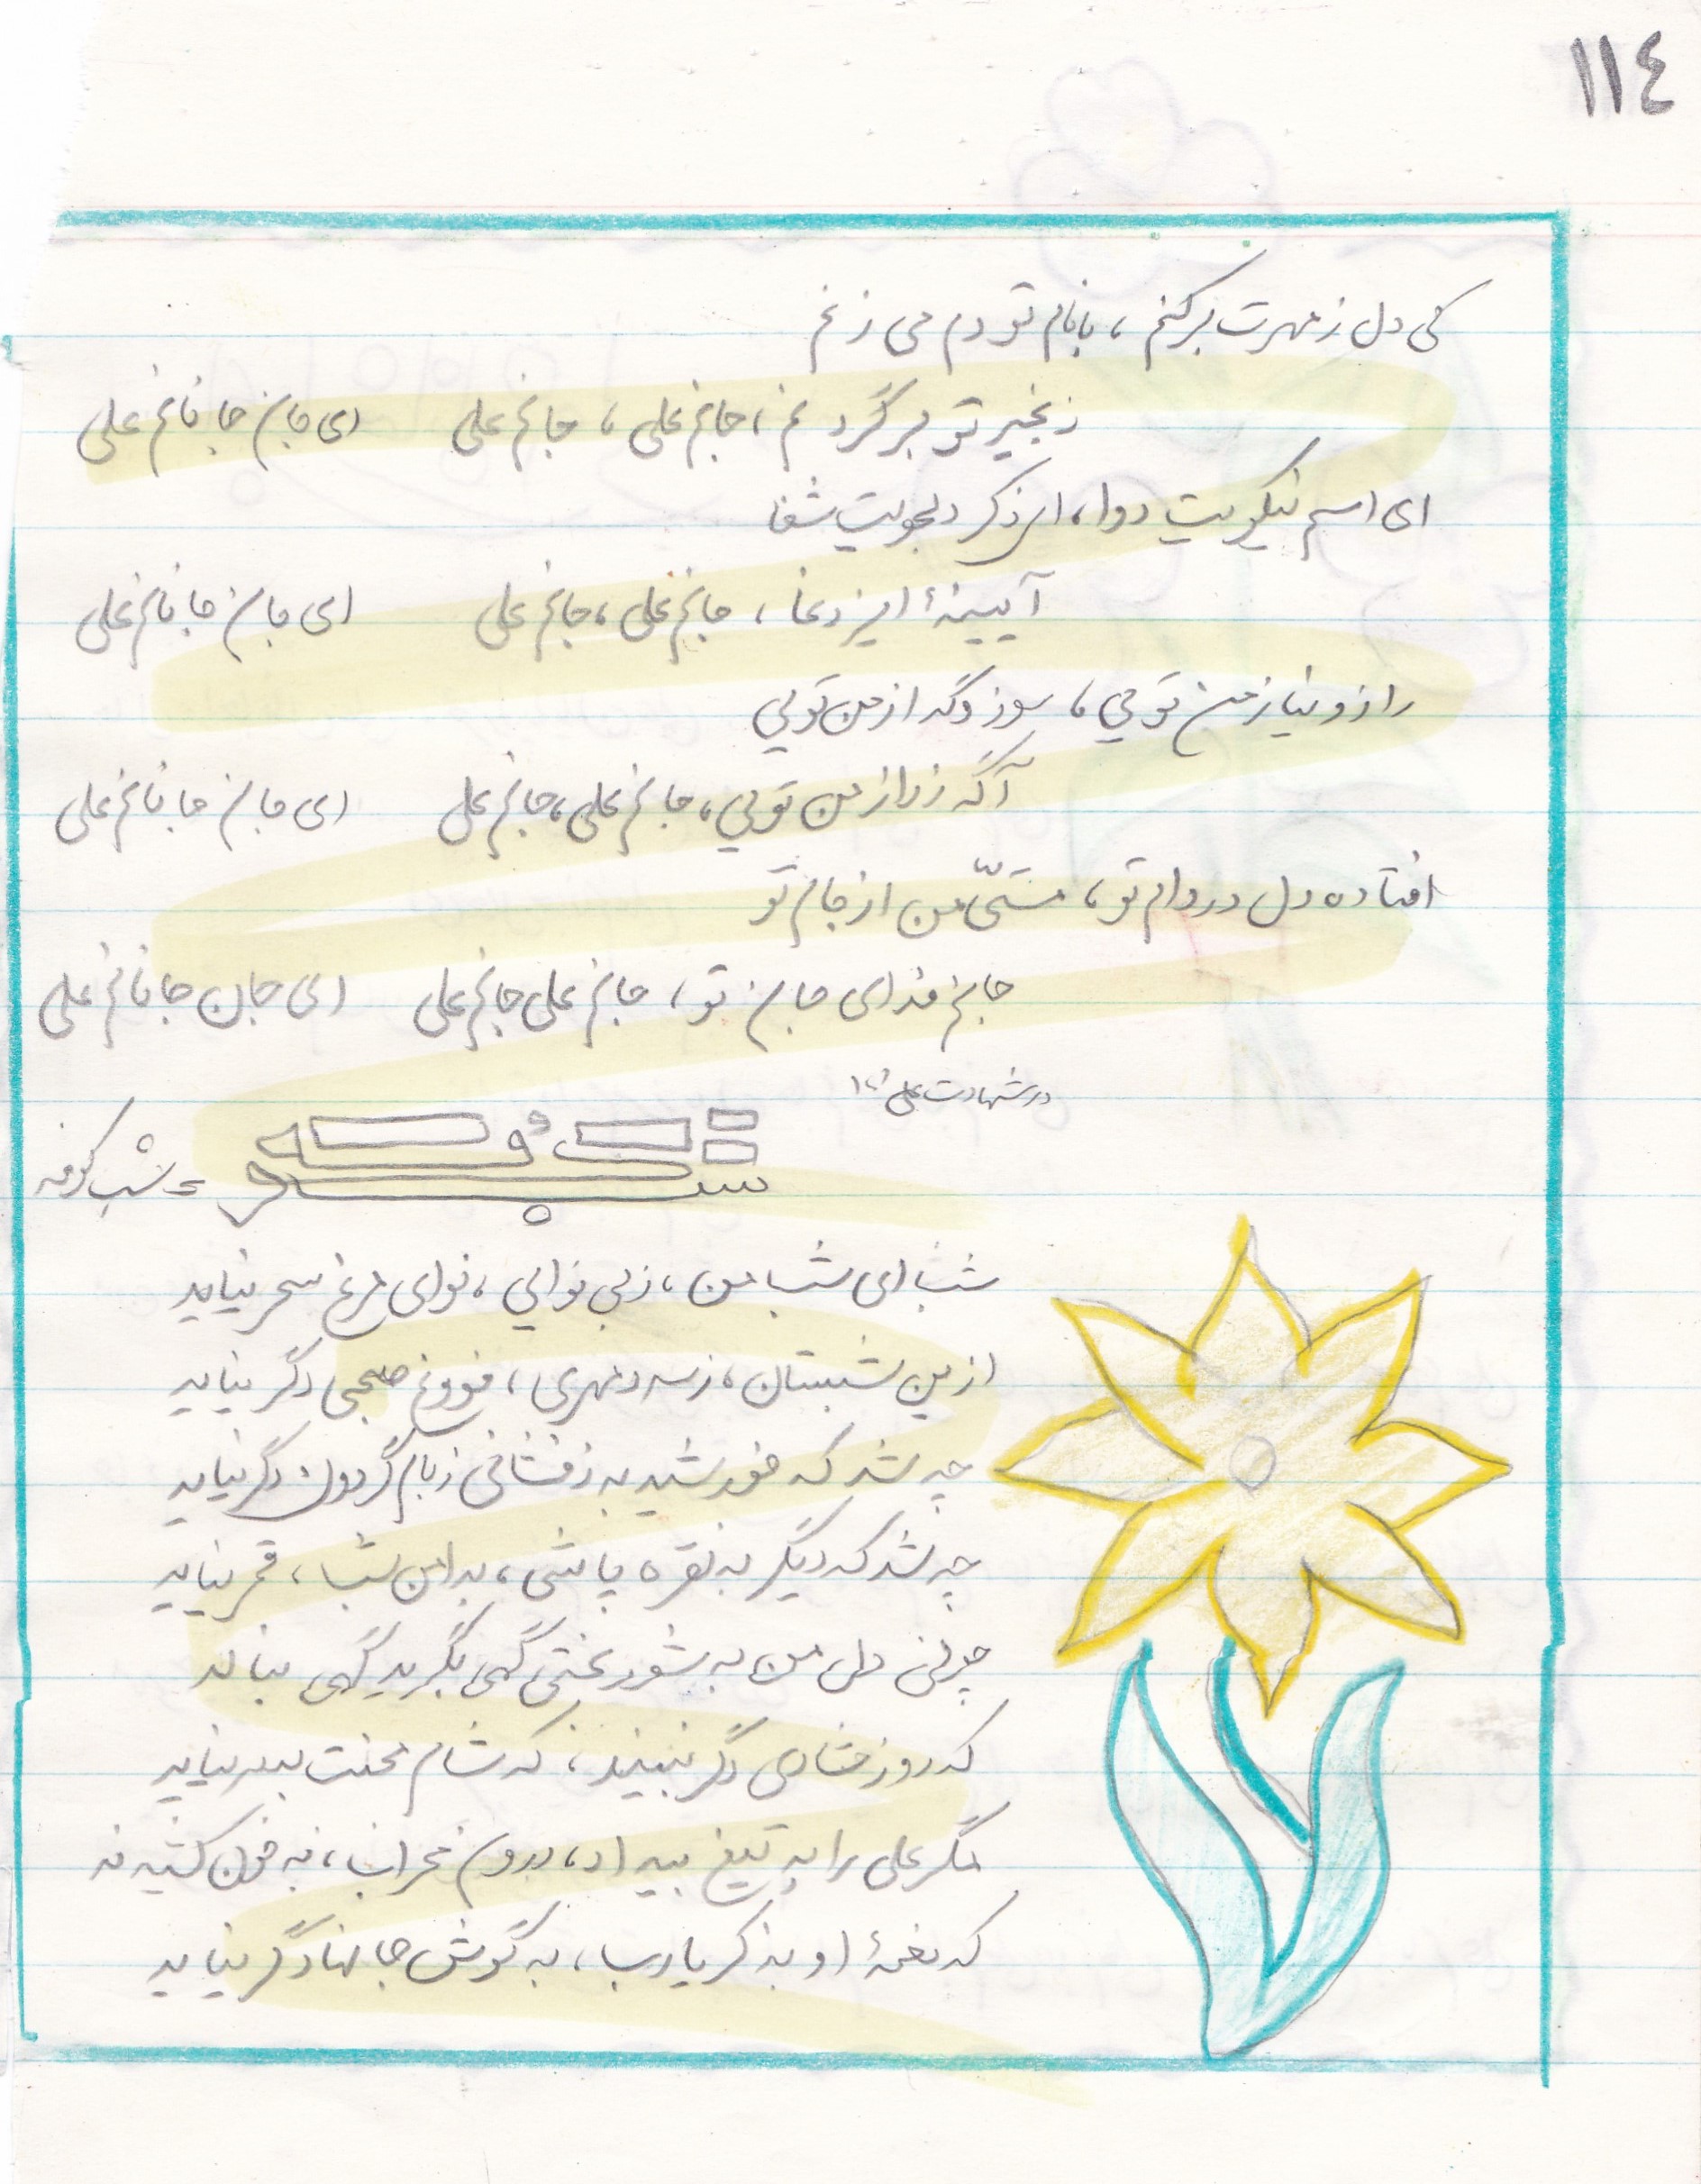 ١١٤
کی دل ز مهرت برکنم، با نام تو دم می زنم
زنجیر تو بر گردنم، جانم علی، جانم علی ای جان جانانم علی
ای اسم نیکویت دوا، ای ذکر دلجویت شفا
آیینهٔ ایزدنما، جانم علی، جانم علی ای جان جانانم علی
راز و نیاز من تویی، سوز و گداز من تویی
آگه ز راز من تویی، جانم علی، جانم علی ای جان جانانم علی
افتاده دل در دام تو، مستیّ من از جام تو
جانم فدای جان تو، جانم علی جانم علی ای جان جانانم علی
در شهادت علی
شب کوفه = شب کوفه
شب ای شب من، ز بی نوایی، نوای مرغ سحر نیاید
ازین شبستان، ز سرد مهری، فروغ صبحی دگر نیاید
چه شد که خورشید به زرفشانی ز بام گردون دگر نیاید
چه شد که دیگر به نقره پاشی، به دامن شب، قمر نیاید
چو نی دل من به شوربختی گهی بگرید گهی بنالد
که روز شادی دگر نبیند، که شام محنت بسر نیاید
مگر علی را به تیغ بیداد، درون محراب، به خون کشیدند
که نغمهٔ او به ذکر یارب، به گوش جانها دگر نیاید